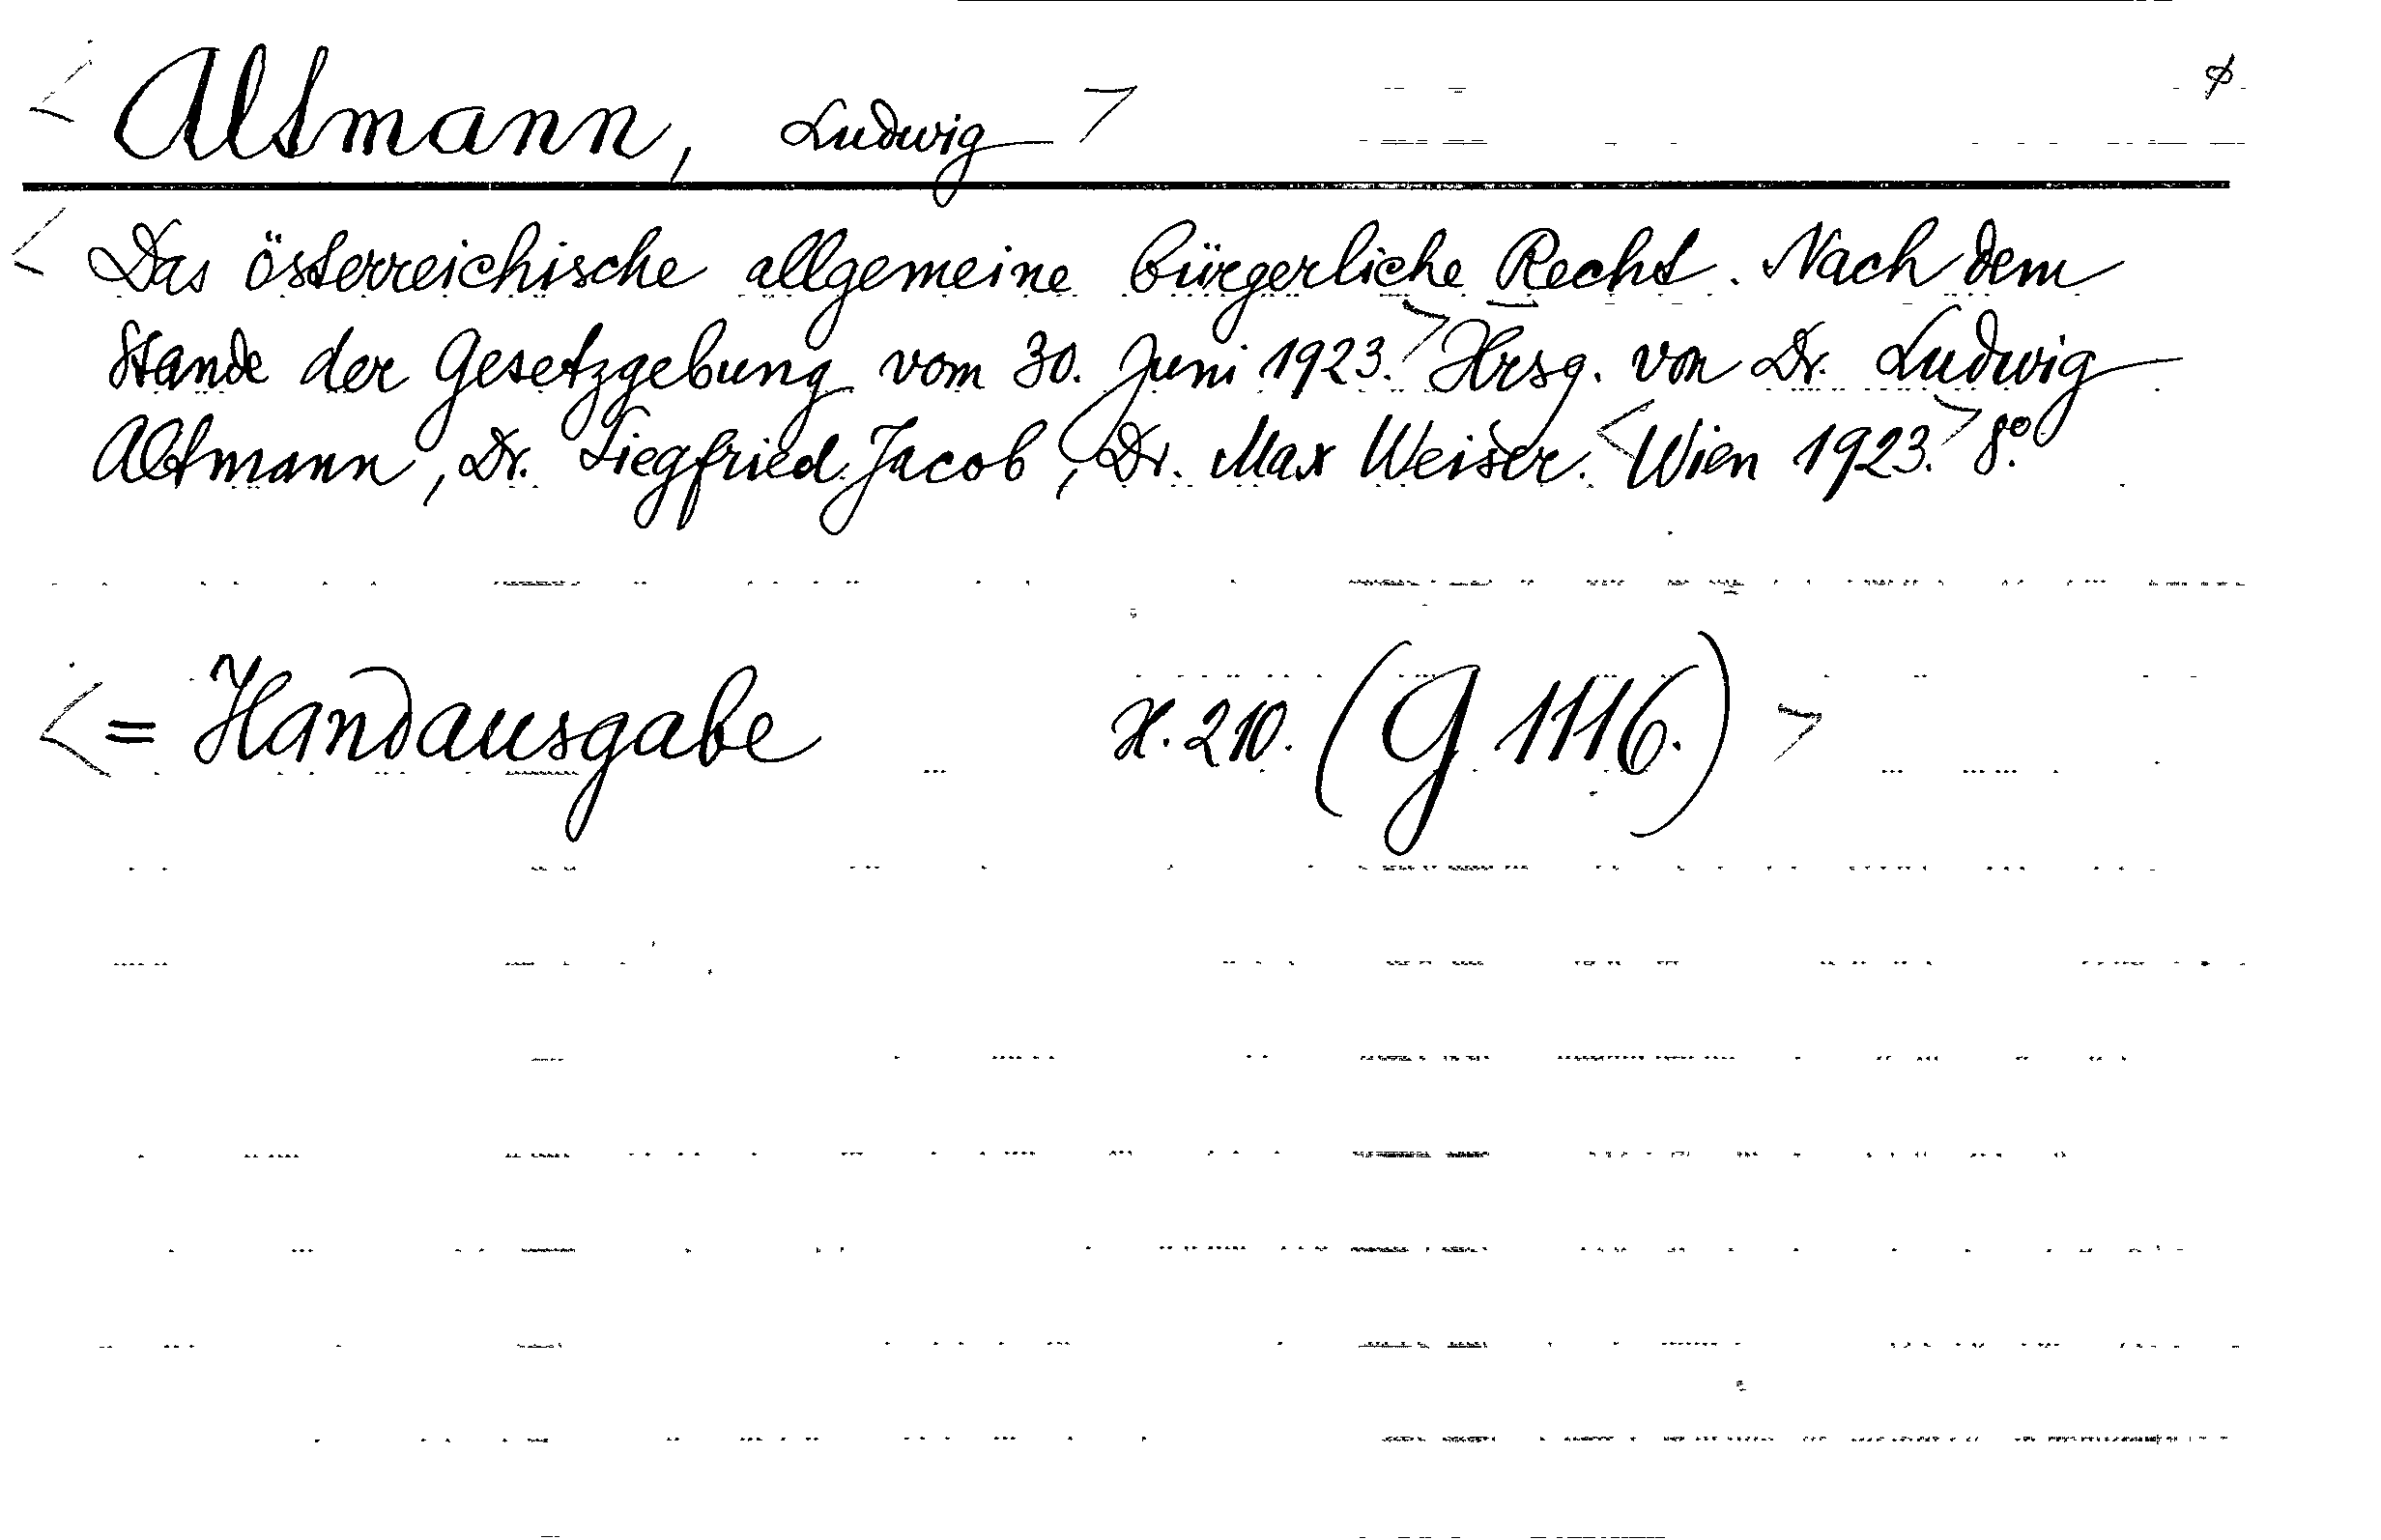 < Altmann, Ludwig > ϕ
< Das österreichische allgemeine bürgerliche Recht. Nach dem
Stande der Gesetzgebung vom 30. Juni 1923. > Hrsg. von Dr. Ludwig
Altmann, Dr. Siegfried Jacob, Dr. Max Weiser. < Wien 1923. > 8º.
< = Handausgabe H. 210. (G 1116.) >